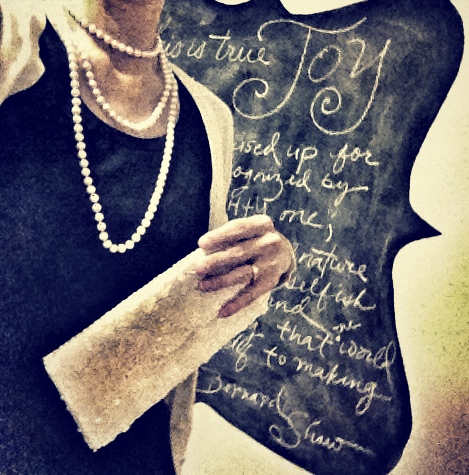 is is true JOY
used up for
ognized by
one;
nature
selfish
and
that world
to making
Bernard
Shaw